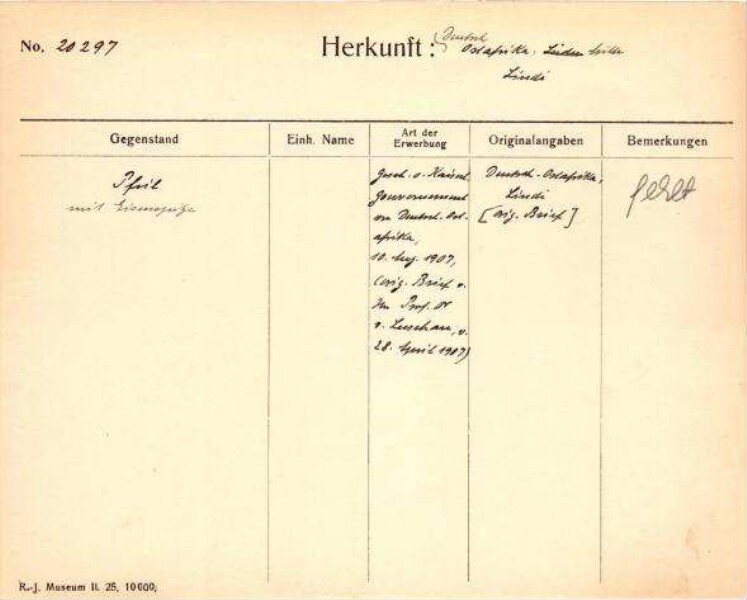 No. 20297
Herkunft: Deutsch
Ostafrika, Süden
Lindi
Gegenstand
Einh. Name
Art der
Erwerbung
Originalangaben
Bemerkungen
Pfeil
mit Eisenspitze
Gesch. v. Kaiserl.
Gouvernement
von Deutsch-Ost-
afrika,
10. Aug. 1907,
(orig. Brief v.
Hrn Prof. Dr
v. Luschan, v.
28. April 1907)
Deutsch-Ostafrika,
Lindi
[orig. Brief]
fehlt
R.-J. Museum II. 25, 10000;